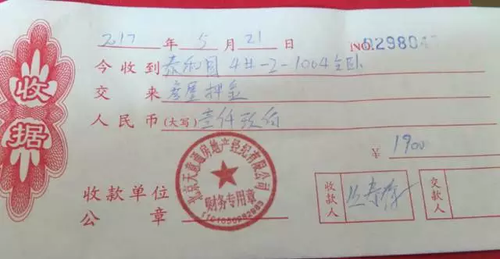 收据
2017 年 5 月 21 日 NO.
今收到 泰和园 4#-2-1004主卧
交来 房屋押金
人民币(大写) 壹仟玖佰
¥ 1900
收款单位
公章
北京天晟通房地产经纪有限公司
财务专用章
收款人
交款人